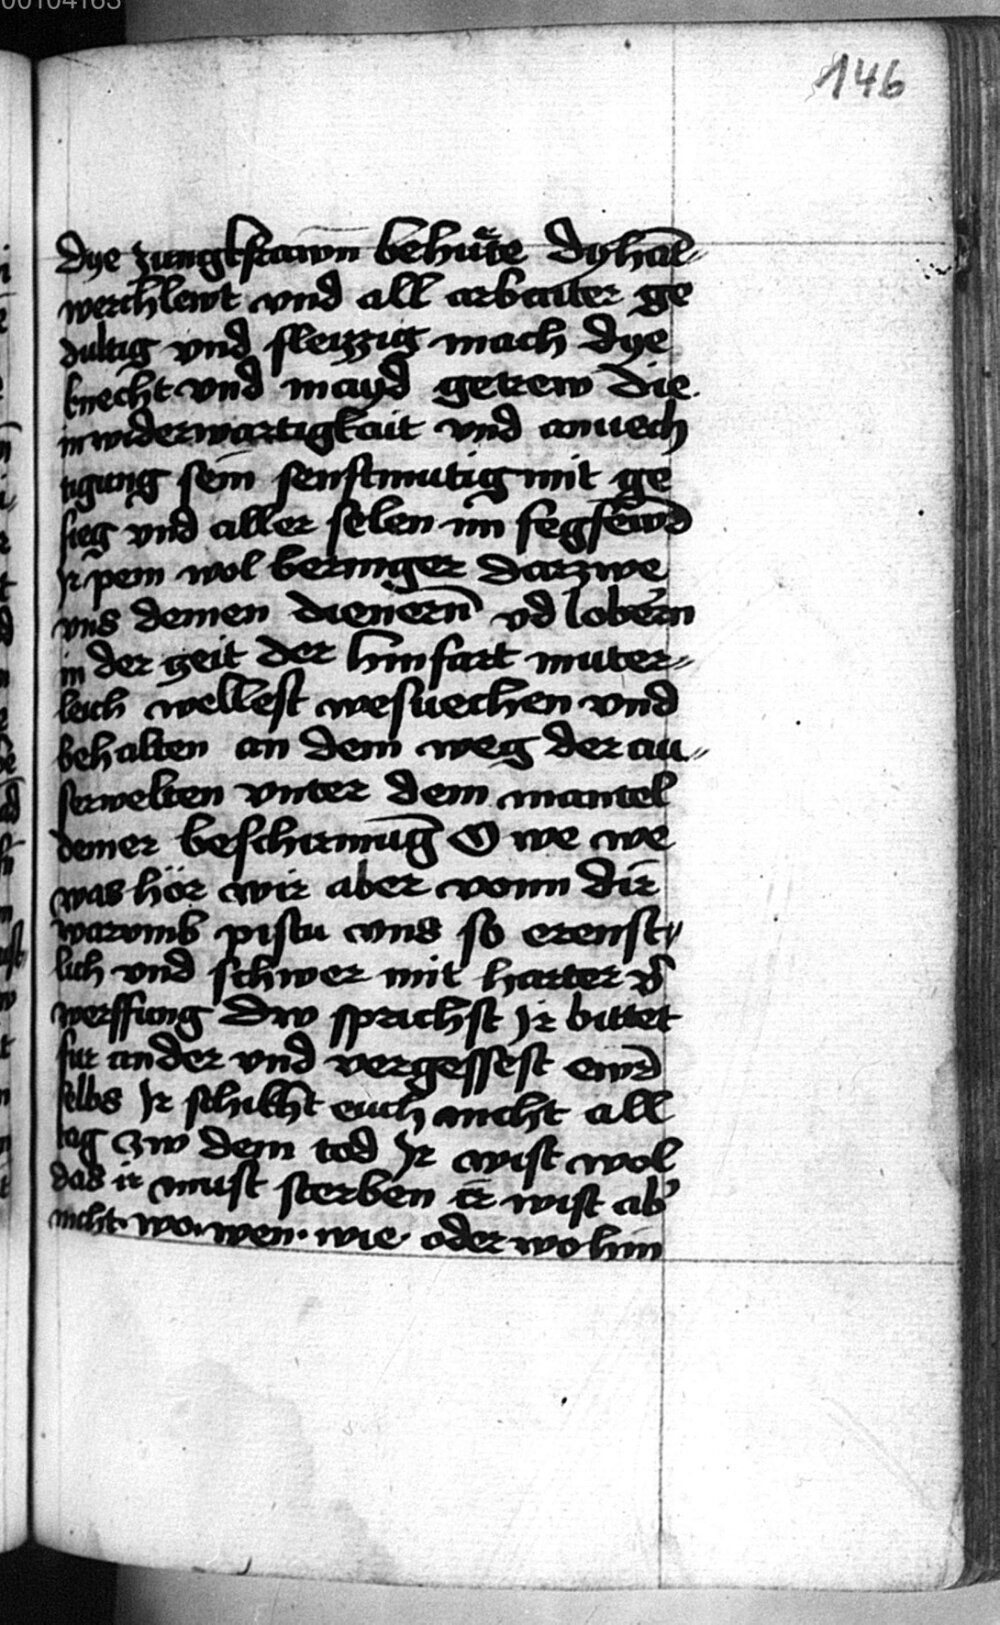 00104163
146
dye Jungkfrawn behute dy han-
werchlewt vnd all arbaiter ge
dultig vnd fleizzig mach dye
knecht vnd mayd getrew die
in widerwartigkait vnd anuech
tigung sein senftmutig mit ge
sieg vnd aller selen im fegfewd
Jr pein wol beringer darzwe
vns deinen dienern vd lobern
in der zeit der hinfart muter-
leich wellest wesuechen vnd
behalten an dem weg der au-
serwelten vnter dem mantel
deiner beschirmug O we we
was hör wir aber vonn dir
warvmb pistu vns so erenst-
lich vnd schwer mit harter v̄
werffung dw sprichst Jr bittet
fur ander vnd vergessest ewr
selbs Jr schikht euch nicht all
tag zw dem tod Jr wist wol
das ir must sterben ir wist ab
nicht· wo· wen· wie· oder wo hin